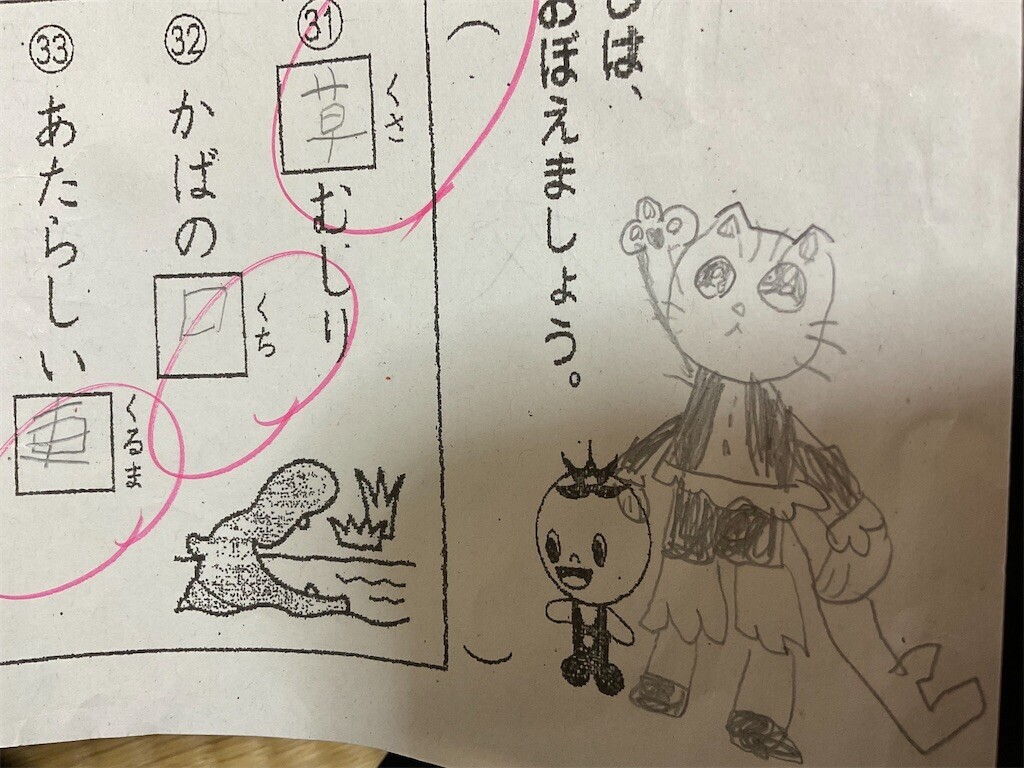 は、
おぼえましょう。
（　）
㉛ 草むしり
くさ
㉜ かばの口
くち
㉝ あたらしい車
くるま